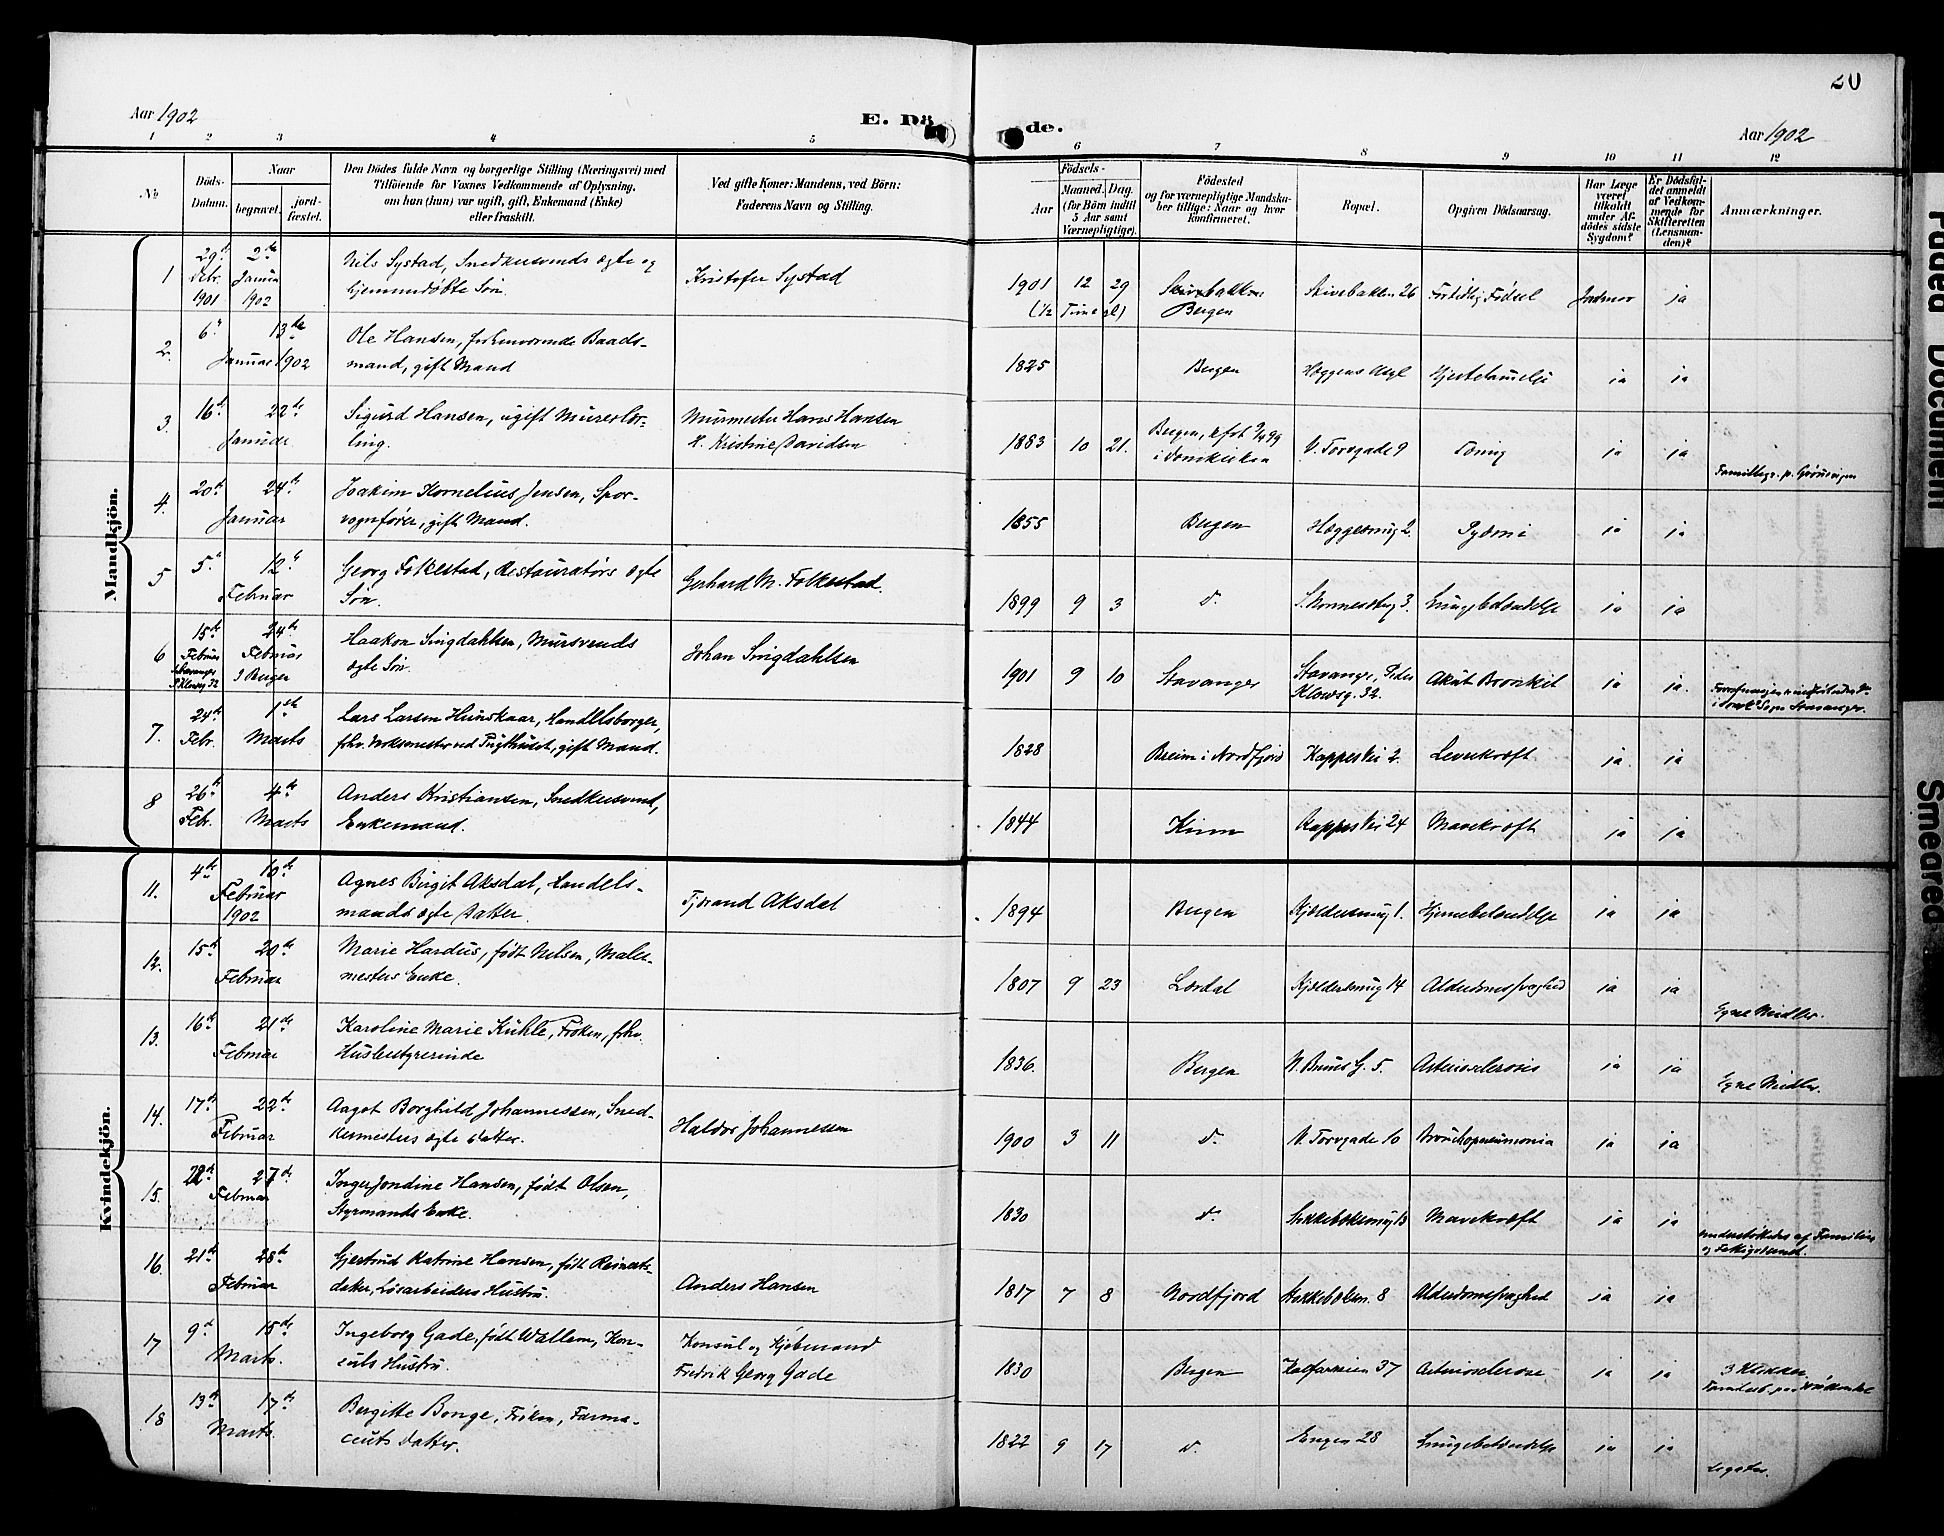 20
Aar 1902
E. Dö de.
Aar 1902
1 2 3 4 5 6 7 8 9 10 11 12
No.
Döds-Datum.
Naar
begravet.
jordfæstet.
Den Dödes fulde Navn og borgerlige Stilling (Næringsvei) med
Tilföiende for Voxnes Vedkommende af Oplysning,
om han (hun) var ugift, gift, Enkemand (Enke)
eller fraskilt.
Ved gifte Koner: Mandens, ved Börn:
Faderens Navn og Stilling.
Födsels-
Aar
Maaned. Dag.
(for Börn indtil
5 Aar samt
Værnepligtige).
Födested
og for værnepligtige Mandska-
ber tillige: Naar og hvor
konfirmeret.
Bopæl.
Opgiven Dödsaarsag.
Har Læge
været
tilkaldt
under Af-
dödes sidste
Sygdom?
Er Dödsfal-
det anmeldt
af Vedkom-
mende for
Skifteretten
(Lensman-
den)?
Anmærkninger.
Mandkjön.
1 29de Debr. 1901 2den Januar 1902 Nils Systad, Snedkersvends ægte og
hjemmedøbte Søn. Kristofer Systad 1901 12 29 (1/2 Time gl) Skivebakken Bergen Skivebakken 26 Fortidlig Fødsel Jordmor ja
2. 6te 13de Januar 1902 Ole Hansen, forhenværende Baads-
mand, gift Mand 1825 Bergen Hæggens Asyl Hjertelammelse ja ja
3. 16de 22de Januar Sigurd Hansen, ugift Murerlær-
ling. Murmester Hans Hansen
H. Kristine Davidsen 1883 10 21. Bergen, kfst
i Domkirken V. Torvgade 9 Tæring ja ja
4. 20de 24de Januar Joakim Kornelius Jensen, Spor-
vognfører, gift Mand. 1855 Bergen Hæggesmug 2. Pyæmi ja ja
5 5te 12te Februar Georg Folkestad, Restauratørs ægte
Søn. Gerhard M. Folkestad. 1899 9 3 do. S. Kornesstug 3. Lungebetændelse ja ja
6 15de Februar Stavanger P. Klowsg 32 24de Februar I Bergen Haakon Singdahlsen, Mursvends
ægte Søn. Johan Singdahlsen 1901 9 10 Stavanger Stavanger, Peder
Klowsg. 32. Akut Bronkit ja ja.
7. 24de Febr. 1ste Marts Lars Larsen Hunskaar, Handelsborger,
fhv. Voksmester ved Tugthuset, gift Mand. 1828 Breim i Nordfjord Kappesvei 2 Leverkræft ja. ja
8 26de Febr. 4de Marts Anders Kristiansen, Snedkersvend,
Enkemand. 1844 Kinn Kappesvei 24 Mavekræft ja ja
Kvindekjön.
11. 4de 10de Februar 1902 Agnes Birgit Aksdal, Handels-
mands ægte Datter. Tjærand Aksdal 1894 Bergen Kjeldersmug 1. Hjernebetændelse ja ja
12. 15de 20de Februar Marie Hardus, født Nilsen, Maler-
mesters Enke. 1807 9 23 Lærdal Kjeldersmug 14 Alderdomssvaghed ja ja Egne Midler.
13. 16de 21de Februar Karoline Marie Kühle, Frøken, fhv.
Husbestyrerinde 1836. Bergen N. Bruns G. 5. Arteriosclerosis ja ja Egne Midler.
14. 17de 22de Februar Aagot Borghild Johannessen, Sned-
kermesters ægte Datter. Haldor Johannessen 1900 3 11 do. V. Torvgade 10 Bronchopneumonia ja ja
15. 27de Februar Inger Jondine Hansen, født Olsen,
Styrmands Enke. 1830 do. Mavekræft ja ja Understøttedes af Familien
og
16. 21de 28de Februar Gjertrud Katrine Hansen, født Reinerts-
datter, Løsarbeiders Hustru. Anders Hansen 1817 7 8 Nordfjord 8 Alderdomssvaghed ja ja
17 9de 15de Marts. Ingeborg Gade, født Wallem, Kon-
suls Hustru. Konsul og Kjøbmand
Fredrik Georg Gade 1830 Bergen Kalfarveien 37 Arteriosclerose ja ja 3 Klokker
18 13de 17de Marts. Bergitte Bonge, Frøken, Farma-
ceuts Datter. 1822 9 17 do. Engen 28 Lungebetændelse ja ja Legater.
Faded Document
Smeared